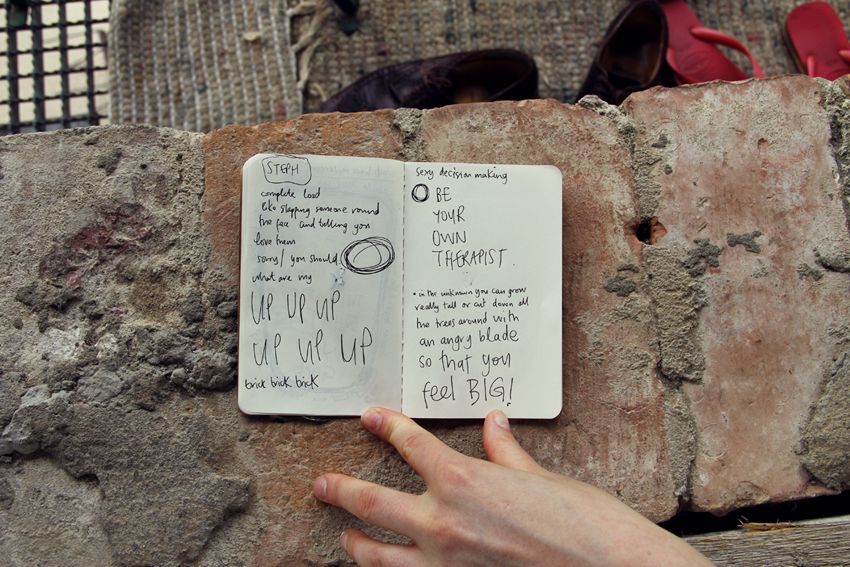 STEPH
complete load
like slapping someone round
the face and telling you
love them
sorry/you should
what are my
UP UP UP
UP UP UP
brick brick brick
sexy decision making
BE
YOUR
OWN
THERAPIST.
• in the unknown you can grow
really tall or cut down all
the trees around with
an angry blade
so that you
feel BIG!